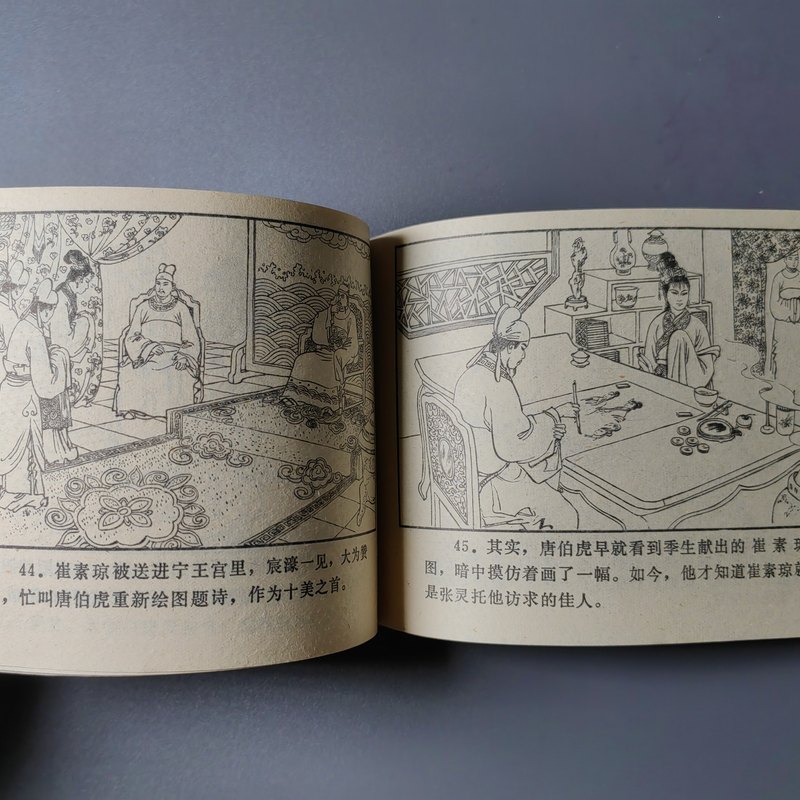 44。崔素琼被送进宁王宫里，宸濠一见，大为赞
，忙叫唐伯虎重新绘图题诗，作为十美之首。
45。其实，唐伯虎早就看到季生献出的 崔 素 琼
图，暗中摸仿着画了一幅。如今，他才知道崔素琼就
是张灵托他访求的佳人。